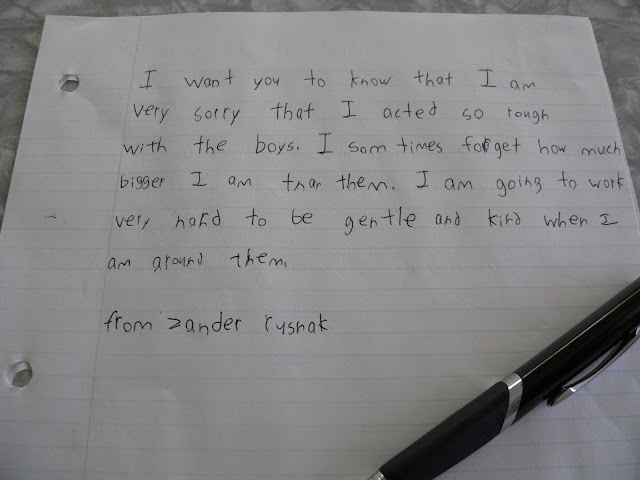 I want you to know that I am
very sorry that I acted so rough
with the boys. I som times forget how much
bigger I am than them. I am going to work
very hard to be gentle and kind when I
am around them.
from zander rysnak